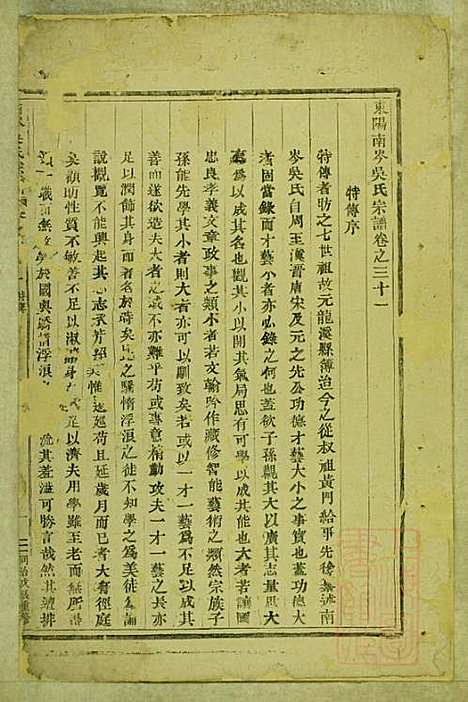 東陽南岑吳氏宗譜卷之三十一
特傳序
特傳者昉之七世祖故元龍溪縣簿治今之從叔祖黃門給事先後無述南
岑吳氏自周王漢晉唐宋及元之先公功德才藝大小之事實也蓋功德大
者固當錄而才藝小者亦必錄之何也蓋欲子孫觀其大以廣其志量思大
以成其名也觀其小以開其氣局思有可學以成其能也大者若讓國
忠良孝義文章政事之類小者若文翰吟作藏修智能藝術之類然宗族子
孫能先學其小者則大者亦可以馴致矣若或以一才一藝爲不足以成其
善而遂欲造夫大者或不亦難乎苟或專意精勤攻夫一才一藝之長亦
足以潤飾其身而者有矣之驕惰浮浪之徒不知學之爲美徒論
說觀覽不能興起其心志承芳紹美惟逡巡苟且延歲月而已者大有徑庭
矣顧昉性質不敏善不足以淑身不足以濟夫用學雖至老而無所
一職而無於國與驕惰浮浪流其差溢可勝言哉然其遭排